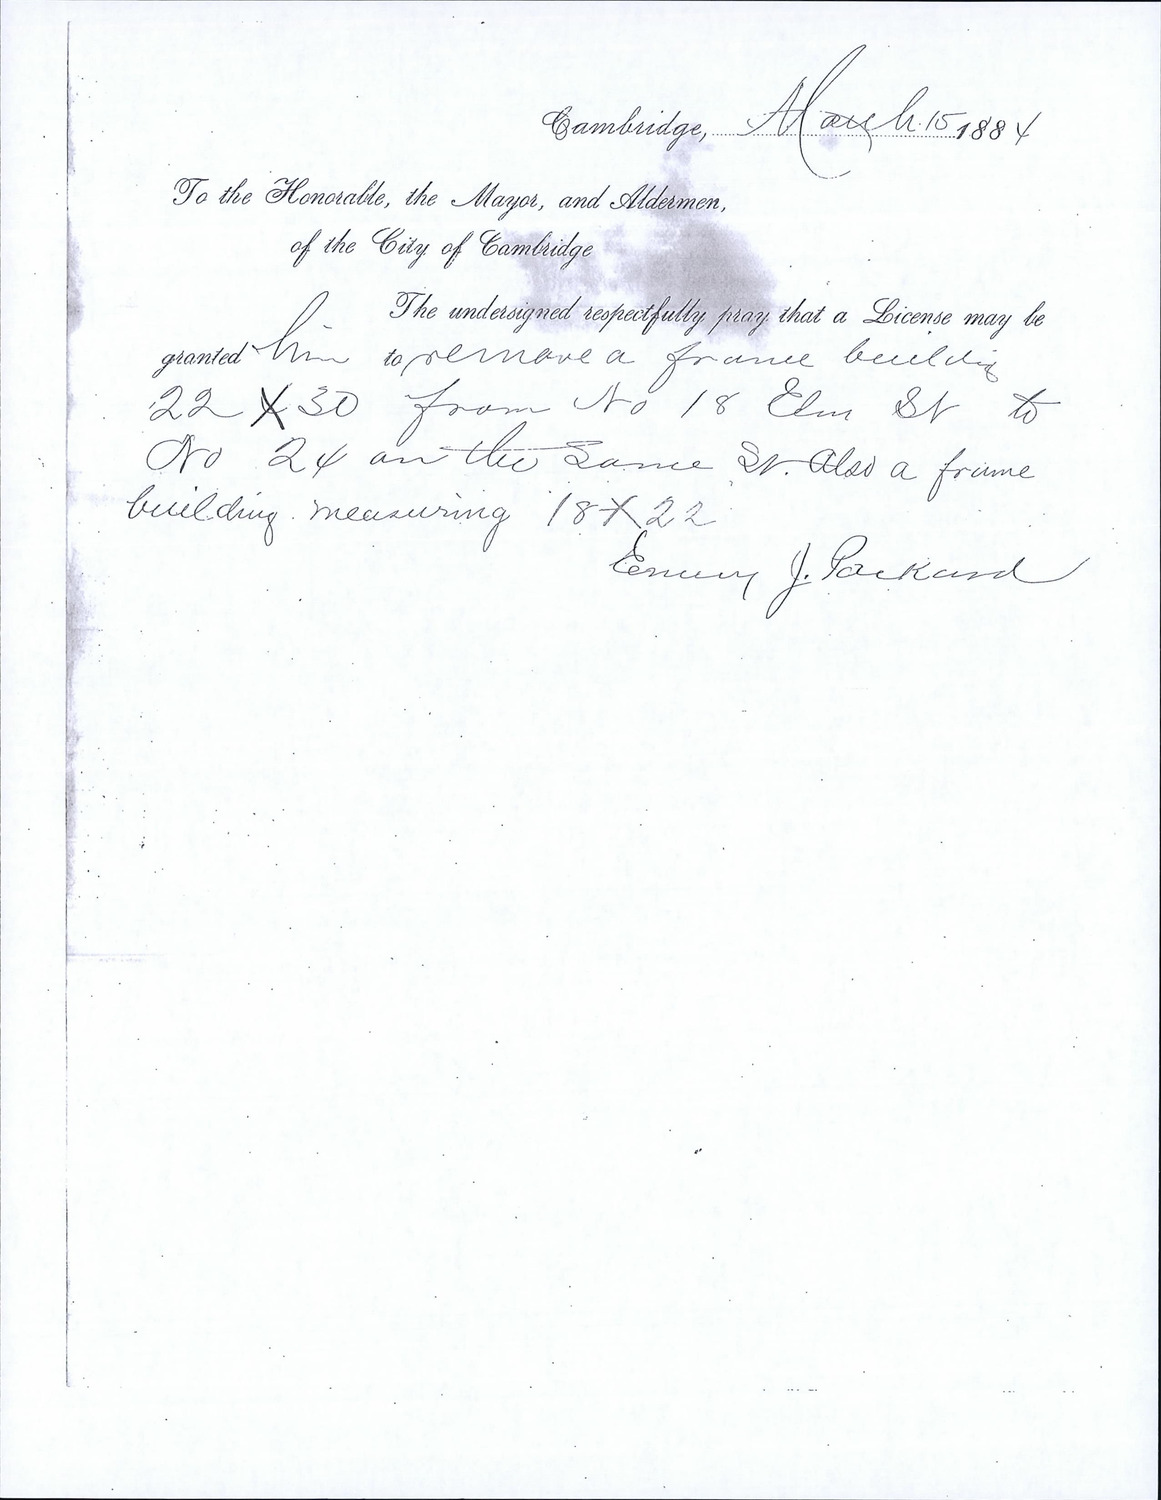 Cambridge, March 15 1884
To the Honorable, the Mayor, and Aldermen,
of the City of Cambridge
The undersigned respectfully pray that a License may be
granted him to remove a frame buildig
22 X 30 from No 18 Elm St to
No 24 on the Same St. Also a frame
building measuring 18 X 22
Emery J. Packard